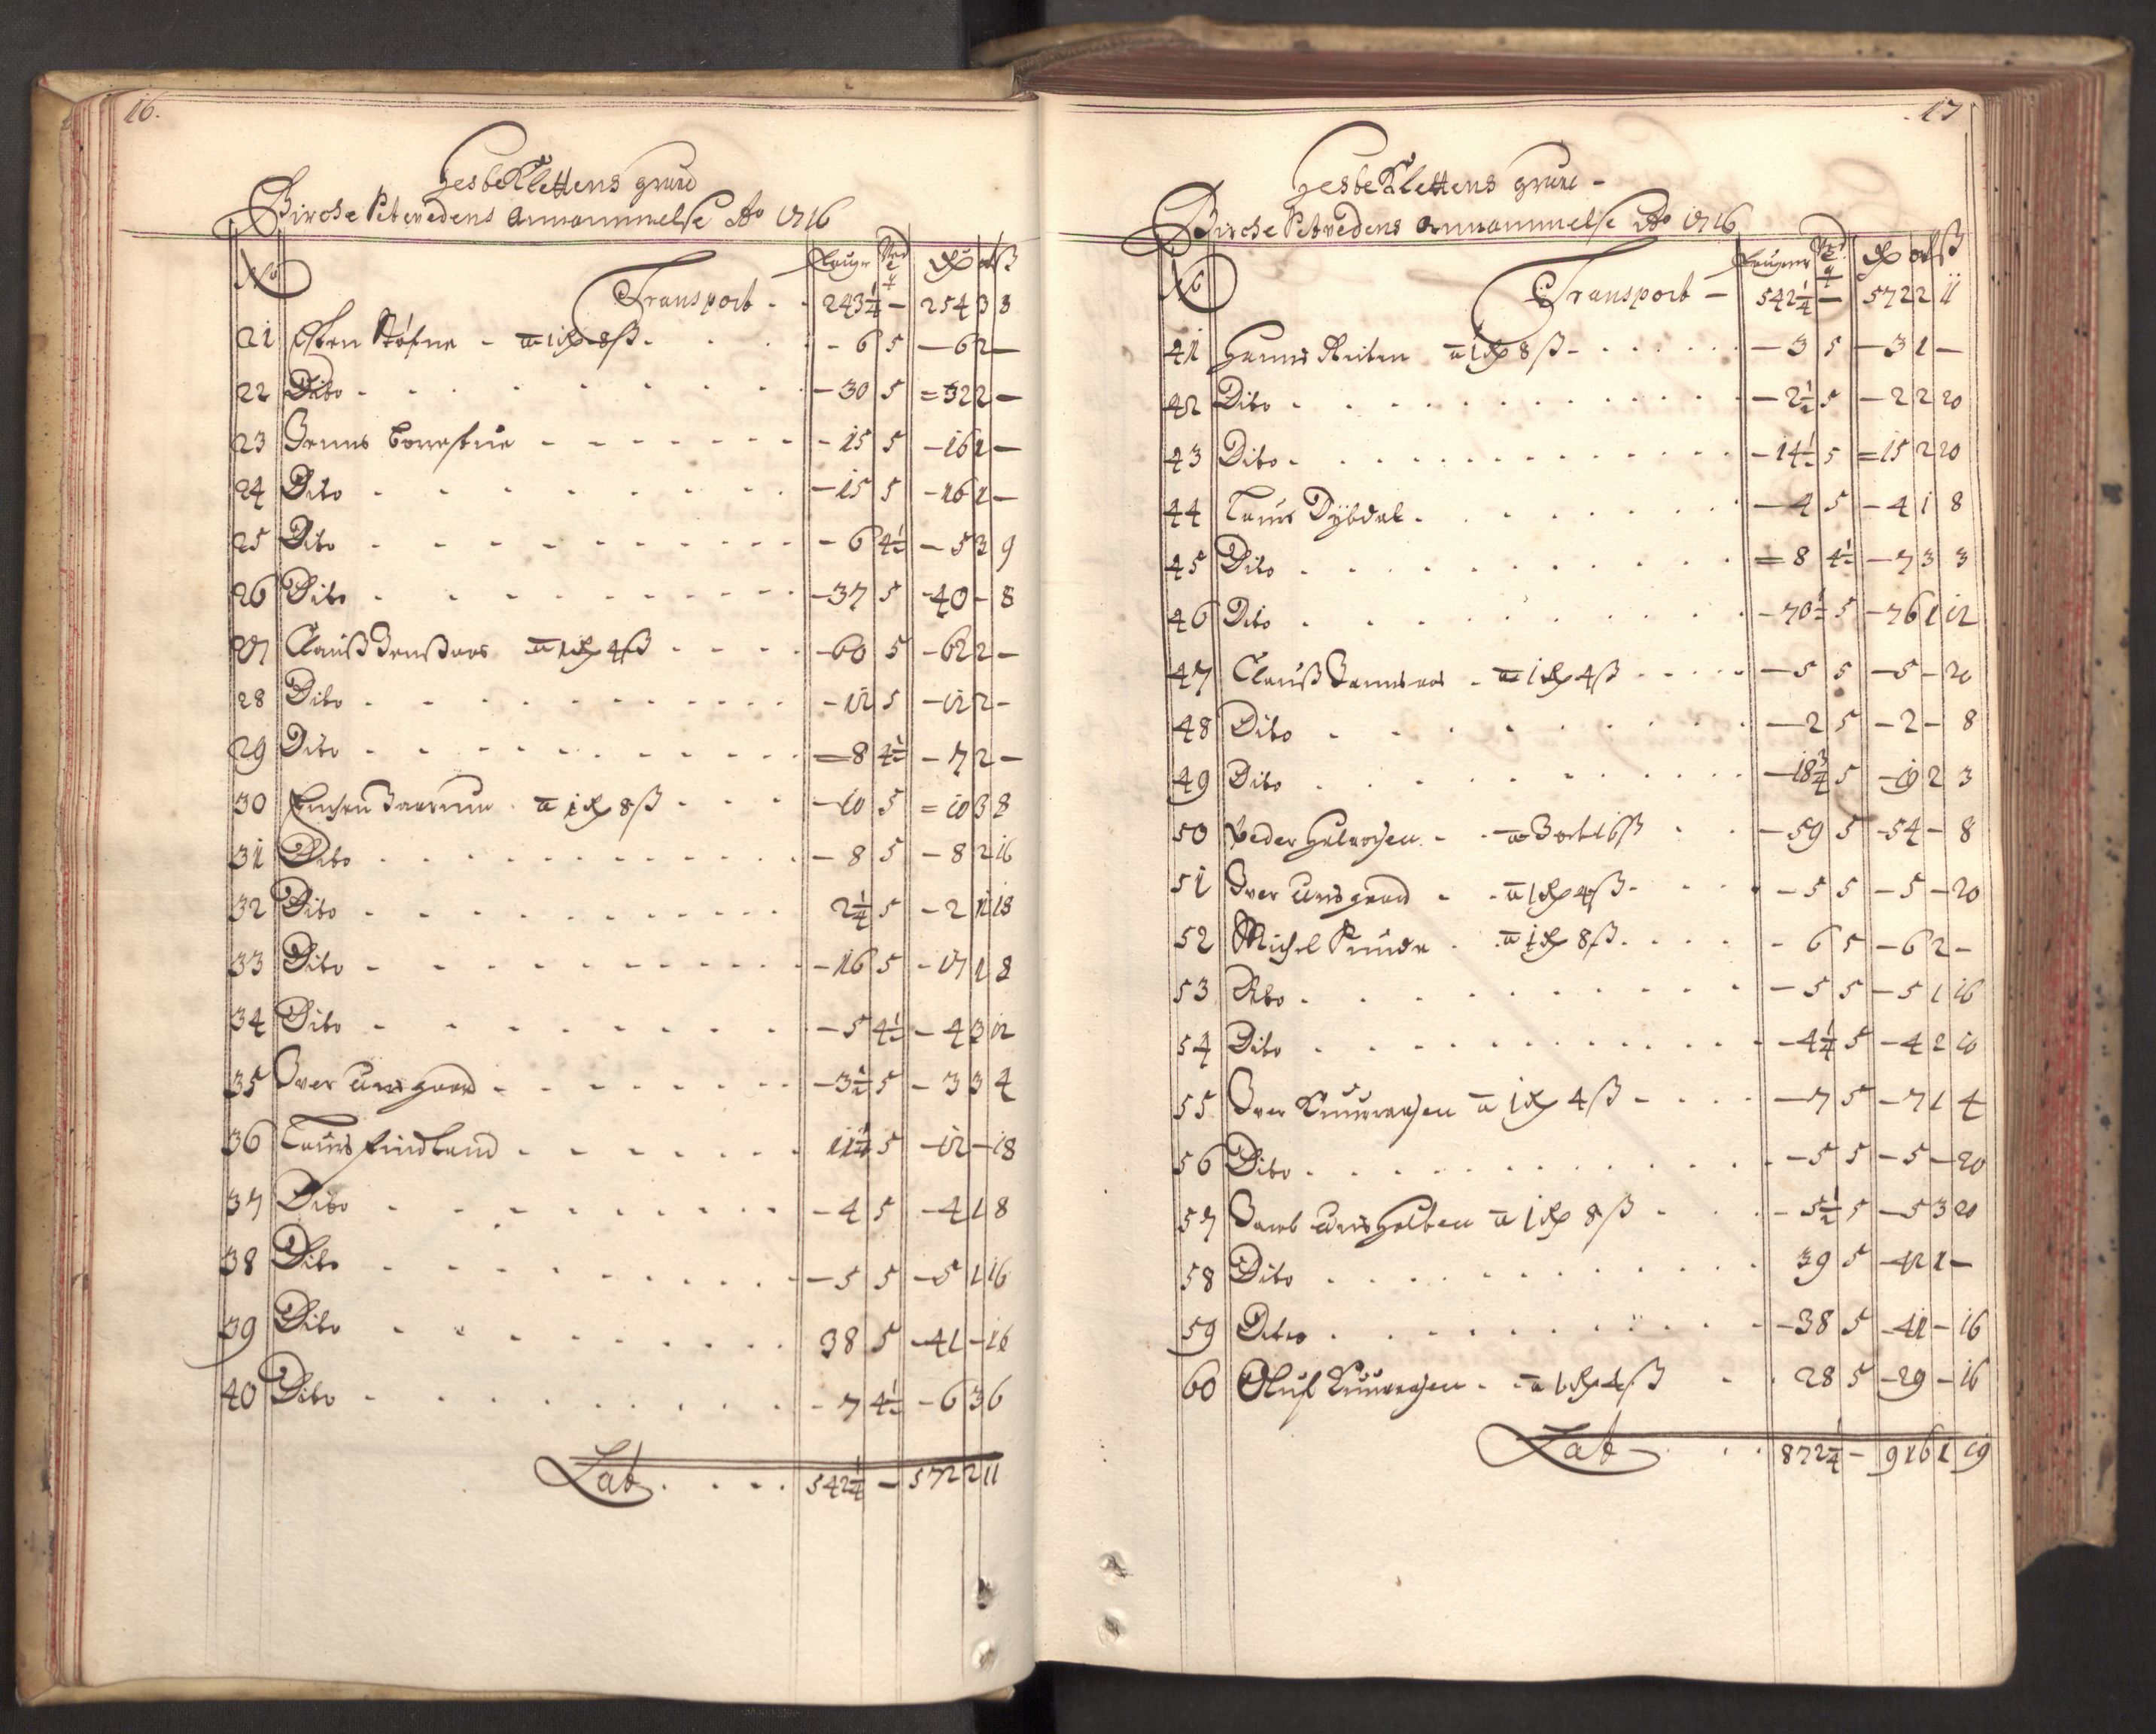 16.
Gesbeklettens grund
Birche Setvedens Annammelse Ao 1716
No Faugn Ved Rdr ort ß
Transport - 243 1/4 - 254 3 3
21 Esten Støfne - a 1 Rdr 8 ß - 6 5 - 6 2 -
22 Dito - 30 5 = 32 2 -
23 Jenns - 15 5 - 16 1 -
24 Dito - 15 5 - 16 1 -
25 Dito - 6 4 1/2 - 5 3 9
26 Dito - 37 5 - 40 - 8
27 Clauß a 1 Rdr 4 ß - 60 5 - 62 2 -
28 Dito - 12 5 - 12 2 -
29 Dito = 8 4 1/2 - 7 2 -
30 a 1 Rdr 8 ß - 10 5 = 10 3 8
31 Dito - 8 5 - 8 2 16
32 Dito 2 1/4 5 - 2 1 18
33 Dito - 16 5 - 17 1 8
34 Dito - 5 4 1/2 - 4 3 12
35 Iver Aunsgaard - 3 1/2 5 - 3 3 4
36 Laurs Findland 11 1/4 5 - 12 - 18
37 Dito - 4 5 - 4 1 8
38 Dito - 5 5 - 5 1 16
39 Dito 38 5 - 41 - 16
40 Dito - 7 4 1/2 - 6 3 6
Lat 542 1/4 - 572 2 11
17
Gesbeklettens grund -
Birche Setvedens Annammelse Ao 1716
No Faugner Ved Rdr ort ß
Transport - 542 1/4 - 572 2 11
41 Hanns Reiten a 1 Rdr 8 ß - 3 5 - 3 1 -
42 Dito - 2 1/2 5 - 2 2 20
43 Dito - 14 1/2 5 = 15 2 20
44 Laurs Dÿbdal - 4 5 - 4 1 8
45 Dito = 8 4 1/2 - 7 3 3
46 Dito - 70 1/2 5 - 76 1 12
47 Clauß - a 1 Rdr 4 ß - 5 5 - 5 - 20
48 Dito - 2 5 - 2 - 8
49 Dito - 18 3/4 5 - 19 2 3
50 Peder - a 3 ort 16 ß - 59 5 - 54 - 8
51 Iver Aunsgaard - a 1 Rdr 4 ß - 5 5 - 5 - 20
52 Michel a 1 Rdr 8 ß - 6 5 - 6 2 -
53 Dito - 5 5 - 5 1 16
54 Dito - 4 1/4 5 - 4 2 10
55 Iver a 1 Rdr 4 ß - 7 5 - 7 1 4
56 Dito - 5 5 - 5 - 20
57 a 1 Rdr 8 ß - 5 1/2 5 - 5 3 20
58 Dito 39 5 - 42 1 -
59 Dito - 38 5 - 41 - 16
60 Oluf - a 1 Rdr 4 ß 28 5 - 29 - 16
Lat 872 1/4 - 916 1 19